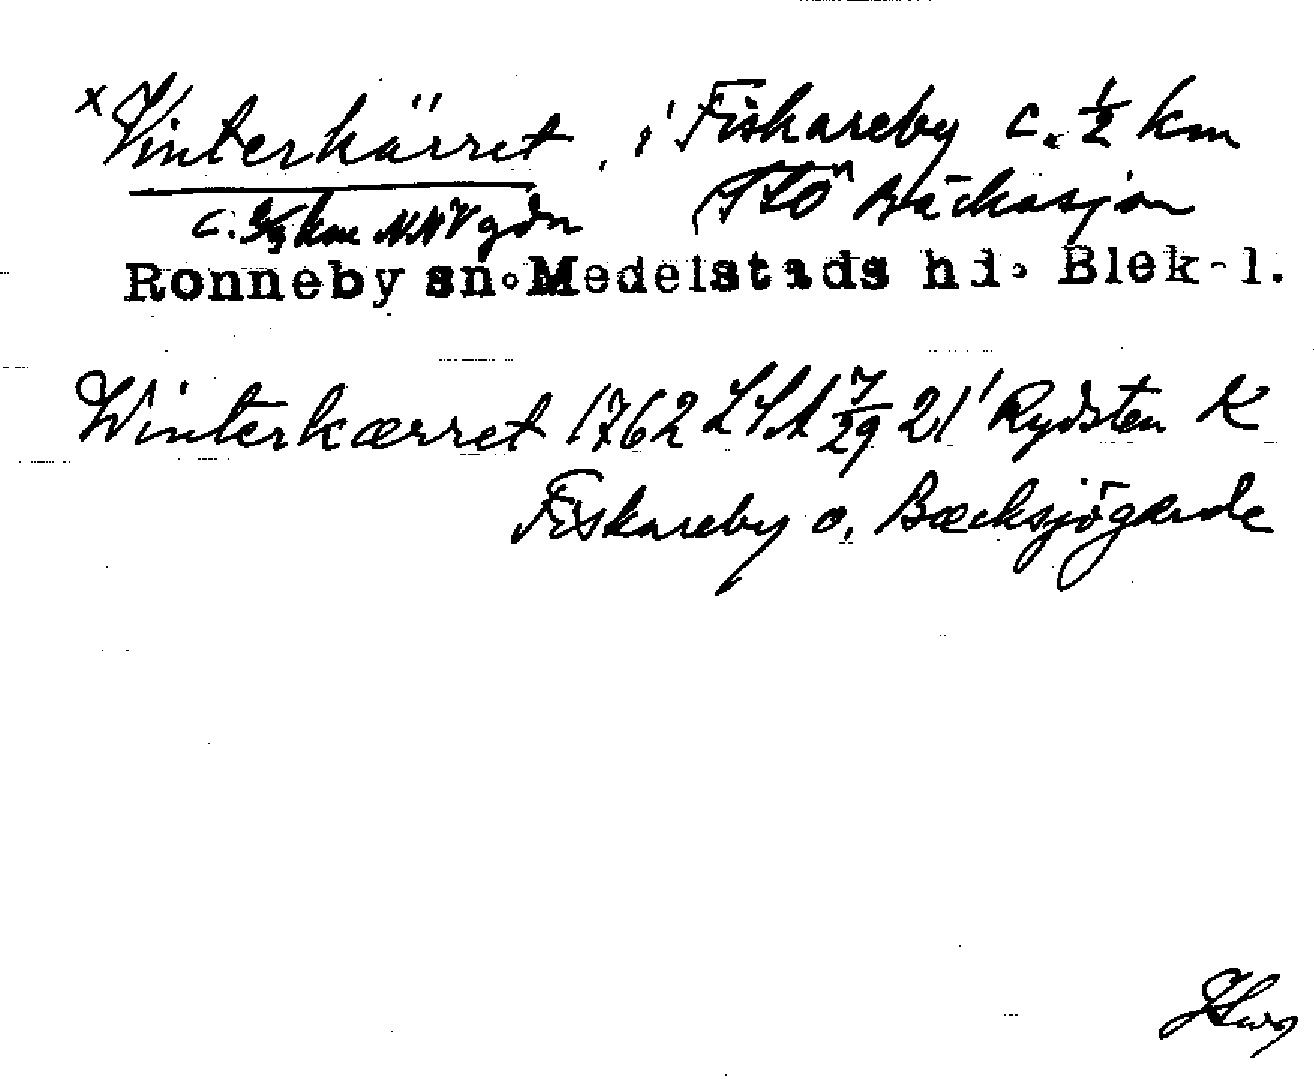 x Vinterkärret, i Fiskareby c. ½ km
c. km NNV gdn Bäckasjön
Ronneby sn. Medelstads hd. Blek. l.
Winterkærret 1762 LSA 7/29 21' Rydsten K
Fiskareby o. Bæcksjögærde